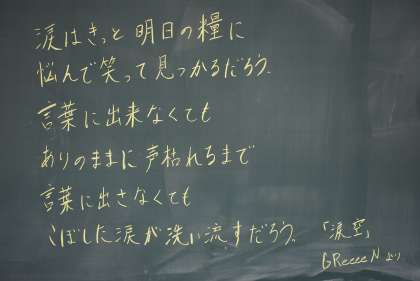 涙はきっと明日の糧に
悩んで笑って見つかるだろう。
言葉に出来なくても
ありのままに声枯れるまで
言葉に出さなくても
こぼした涙が洗い流すだろう。 「涙空」
GReeeeN より